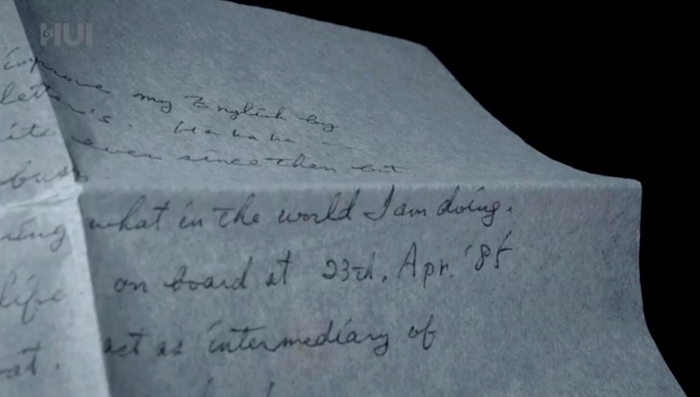 HUI
improve my English by
letter's. Ha ha ha
ite ever since then but
busy.
ring what in the world I am doing.
life on board at 23rd, Apr. '85
at. act as intermediary of